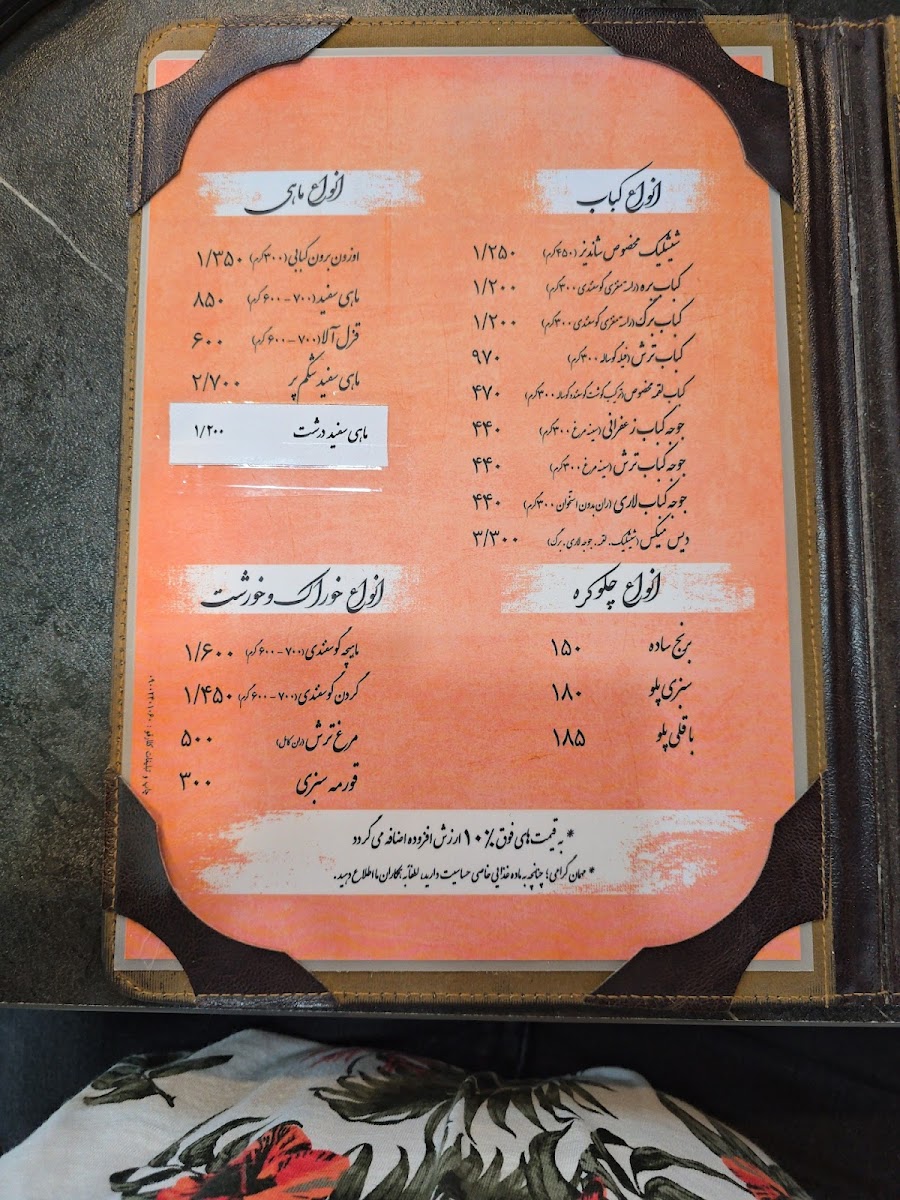 انواع کباب
شیشلیک مخصوص شاندیز (۴۵۰گرم) ۱/۲۵۰
کباب بره (راسته مغزی گوسفندی ۳۰۰گرم) ۱/۲۰۰
کباب برگ (راسته مغزی گوسفندی ۳۰۰گرم) ۱/۲۰۰
کباب ترش (فیله گوساله ۳۰۰گرم) ۹۷۰
کباب لقمه مخصوص (ترکیب گوشت گوسفند و گوساله ۳۰۰گرم) ۴۷۰
جوجه کباب زعفرانی (سینه مرغ ۳۰۰گرم) ۴۴۰
جوجه کباب ترش (سینه مرغ ۳۰۰گرم) ۴۴۰
جوجه کباب لاری (ران بدون استخوان ۳۰۰گرم) ۴۴۰
دیس میکس (شیشلیک، لقمه، جوجه لاری، برگ) ۳/۳۰۰
انواع چلو کره
برنج ساده ۱۵۰
سبزی پلو ۱۸۰
باقلی پلو ۱۸۵
انواع ماهی
اوزون برون کبابی (۳۰۰گرم) ۱/۳۵۰
ماهی سفید (۷۰۰-۶۰۰ گرم) ۸۵۰
قزل آلا (۷۰۰-۶۰۰ گرم) ۶۰۰
ماهی سفید شکم پر ۲/۷۰۰
ماهی سفید درشت ۱/۲۰۰
انواع خوراک و خورشت
ماهیچه گوسفندی (۷۰۰-۶۰۰ گرم) ۱/۶۰۰
گردن گوسفندی (۷۰۰-۶۰۰ گرم) ۱/۴۵۰
مرغ ترش (ران کامل) ۵۰۰
قورمه سبزی ۳۰۰
* به قیمت‌های فوق ۱۰٪ ارزش افزوده اضافه می گردد
* مهمان گرامی؛ چنانچه به ماده غذایی خاصی حساسیت دارید، لطفا به همکاران ما اطلاع دهید.
چاپ و تبلیغات